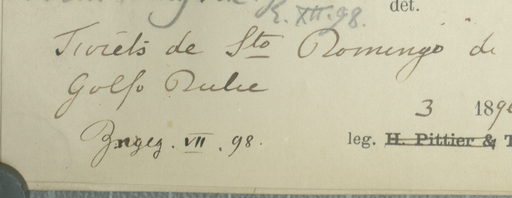 R. XII. 98.
det.
Forêts de Sto Domingo de
Golfo Dulce
3 189
VII. 98.
leg. H. Pittier &